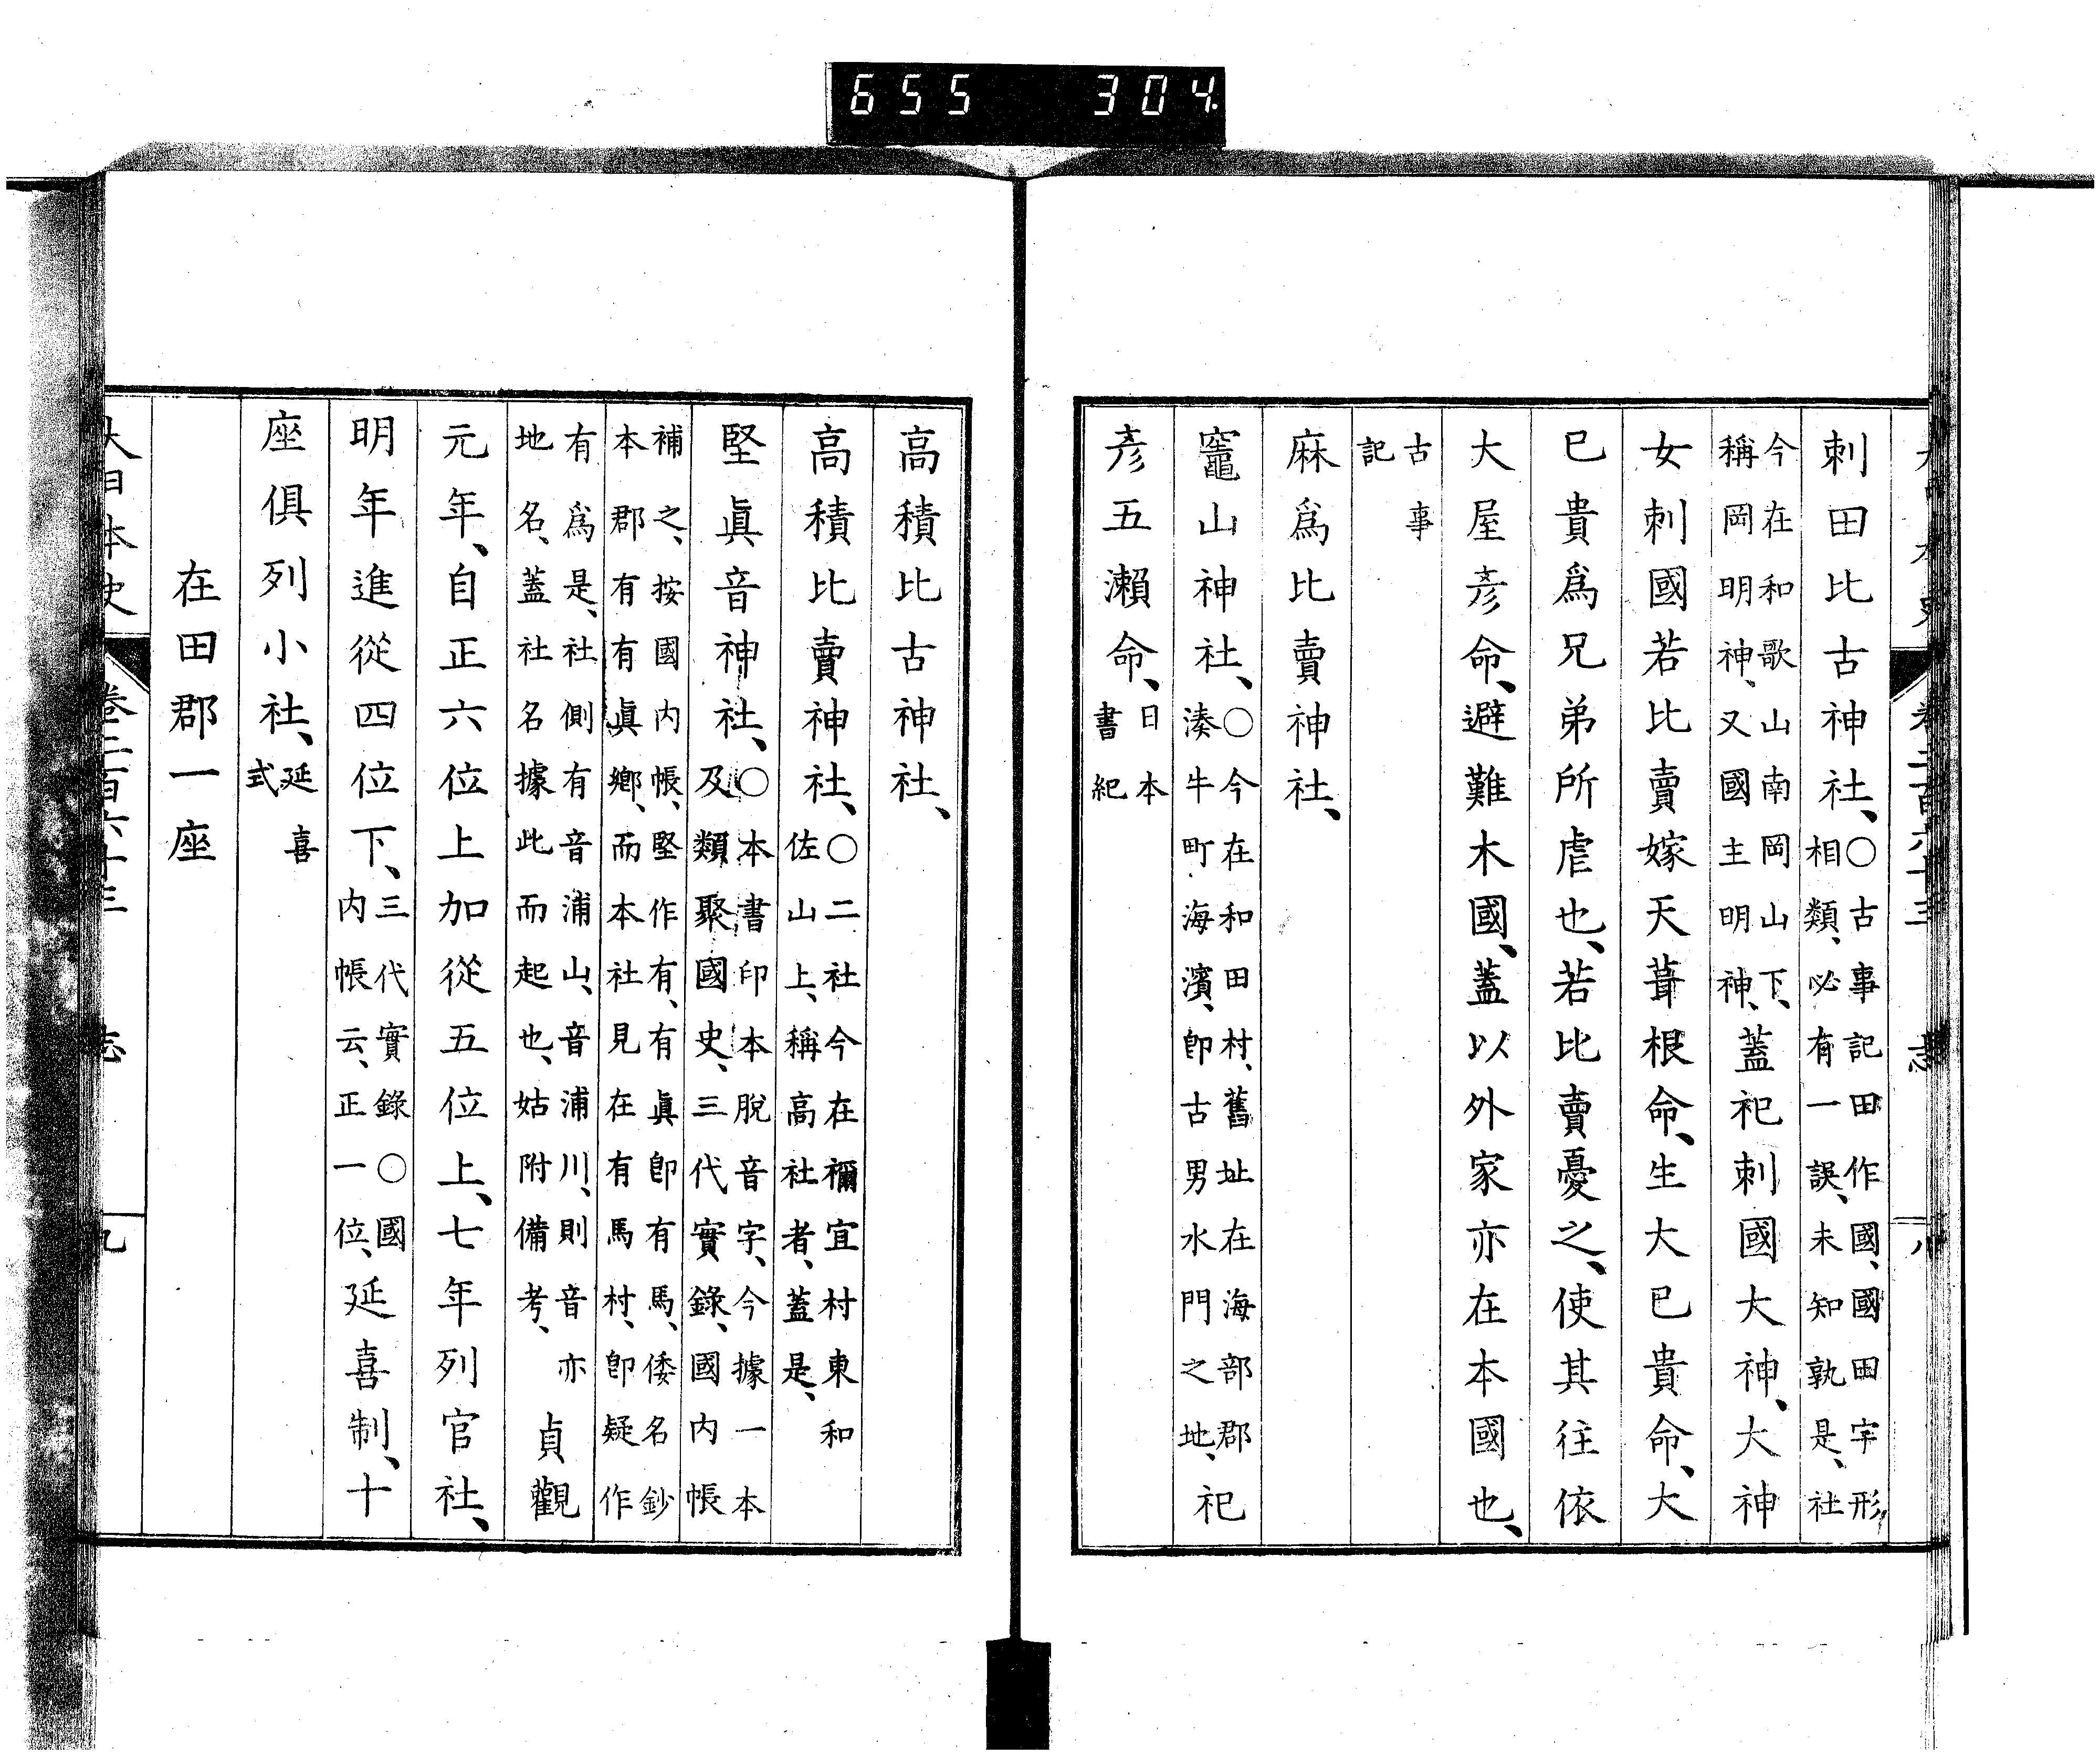 655 304
刺田比古神社、○古事記田作國、國田字形相類、必有一誤、未知孰是、社
今在和歌山南岡山下、稱岡明神、又國主明神、蓋祀刺國大神、大神
女刺國若比賣嫁天葺根命、生大已貴命、大
已貴爲兄弟所虐也、若比賣憂之、使其往依
大屋彥命、避難木國、蓋以外家亦在本國也、
古事記
麻爲比賣神社、
竈山神社、○今在和田村、舊址在海部郡湊牛町海濱、卽古男水門之地、祀
彥五瀨命、日本書紀
高積比古神社、
高積比賣神社、○二社今在禰宜村東和佐山上、稱高社者、蓋是、
堅眞音神社、○本書印本脫音字、今據一本及類聚國史、三代實錄、國內帳
補之、按國內帳、堅作有、有眞卽有馬、倭名鈔本郡有有眞鄕、而本社見在有馬村、卽疑作
有爲是、社側有音浦山、音浦川、則音亦地名、蓋社名據此而起也、姑附備考、貞觀
元年、自正六位上加從五位上、七年列官社、
明年進從四位下、三代實錄○國內帳云、正一位、延喜制、十
座俱列小社、延喜式
在田郡一座
大日本史 卷二百六十三 志 九